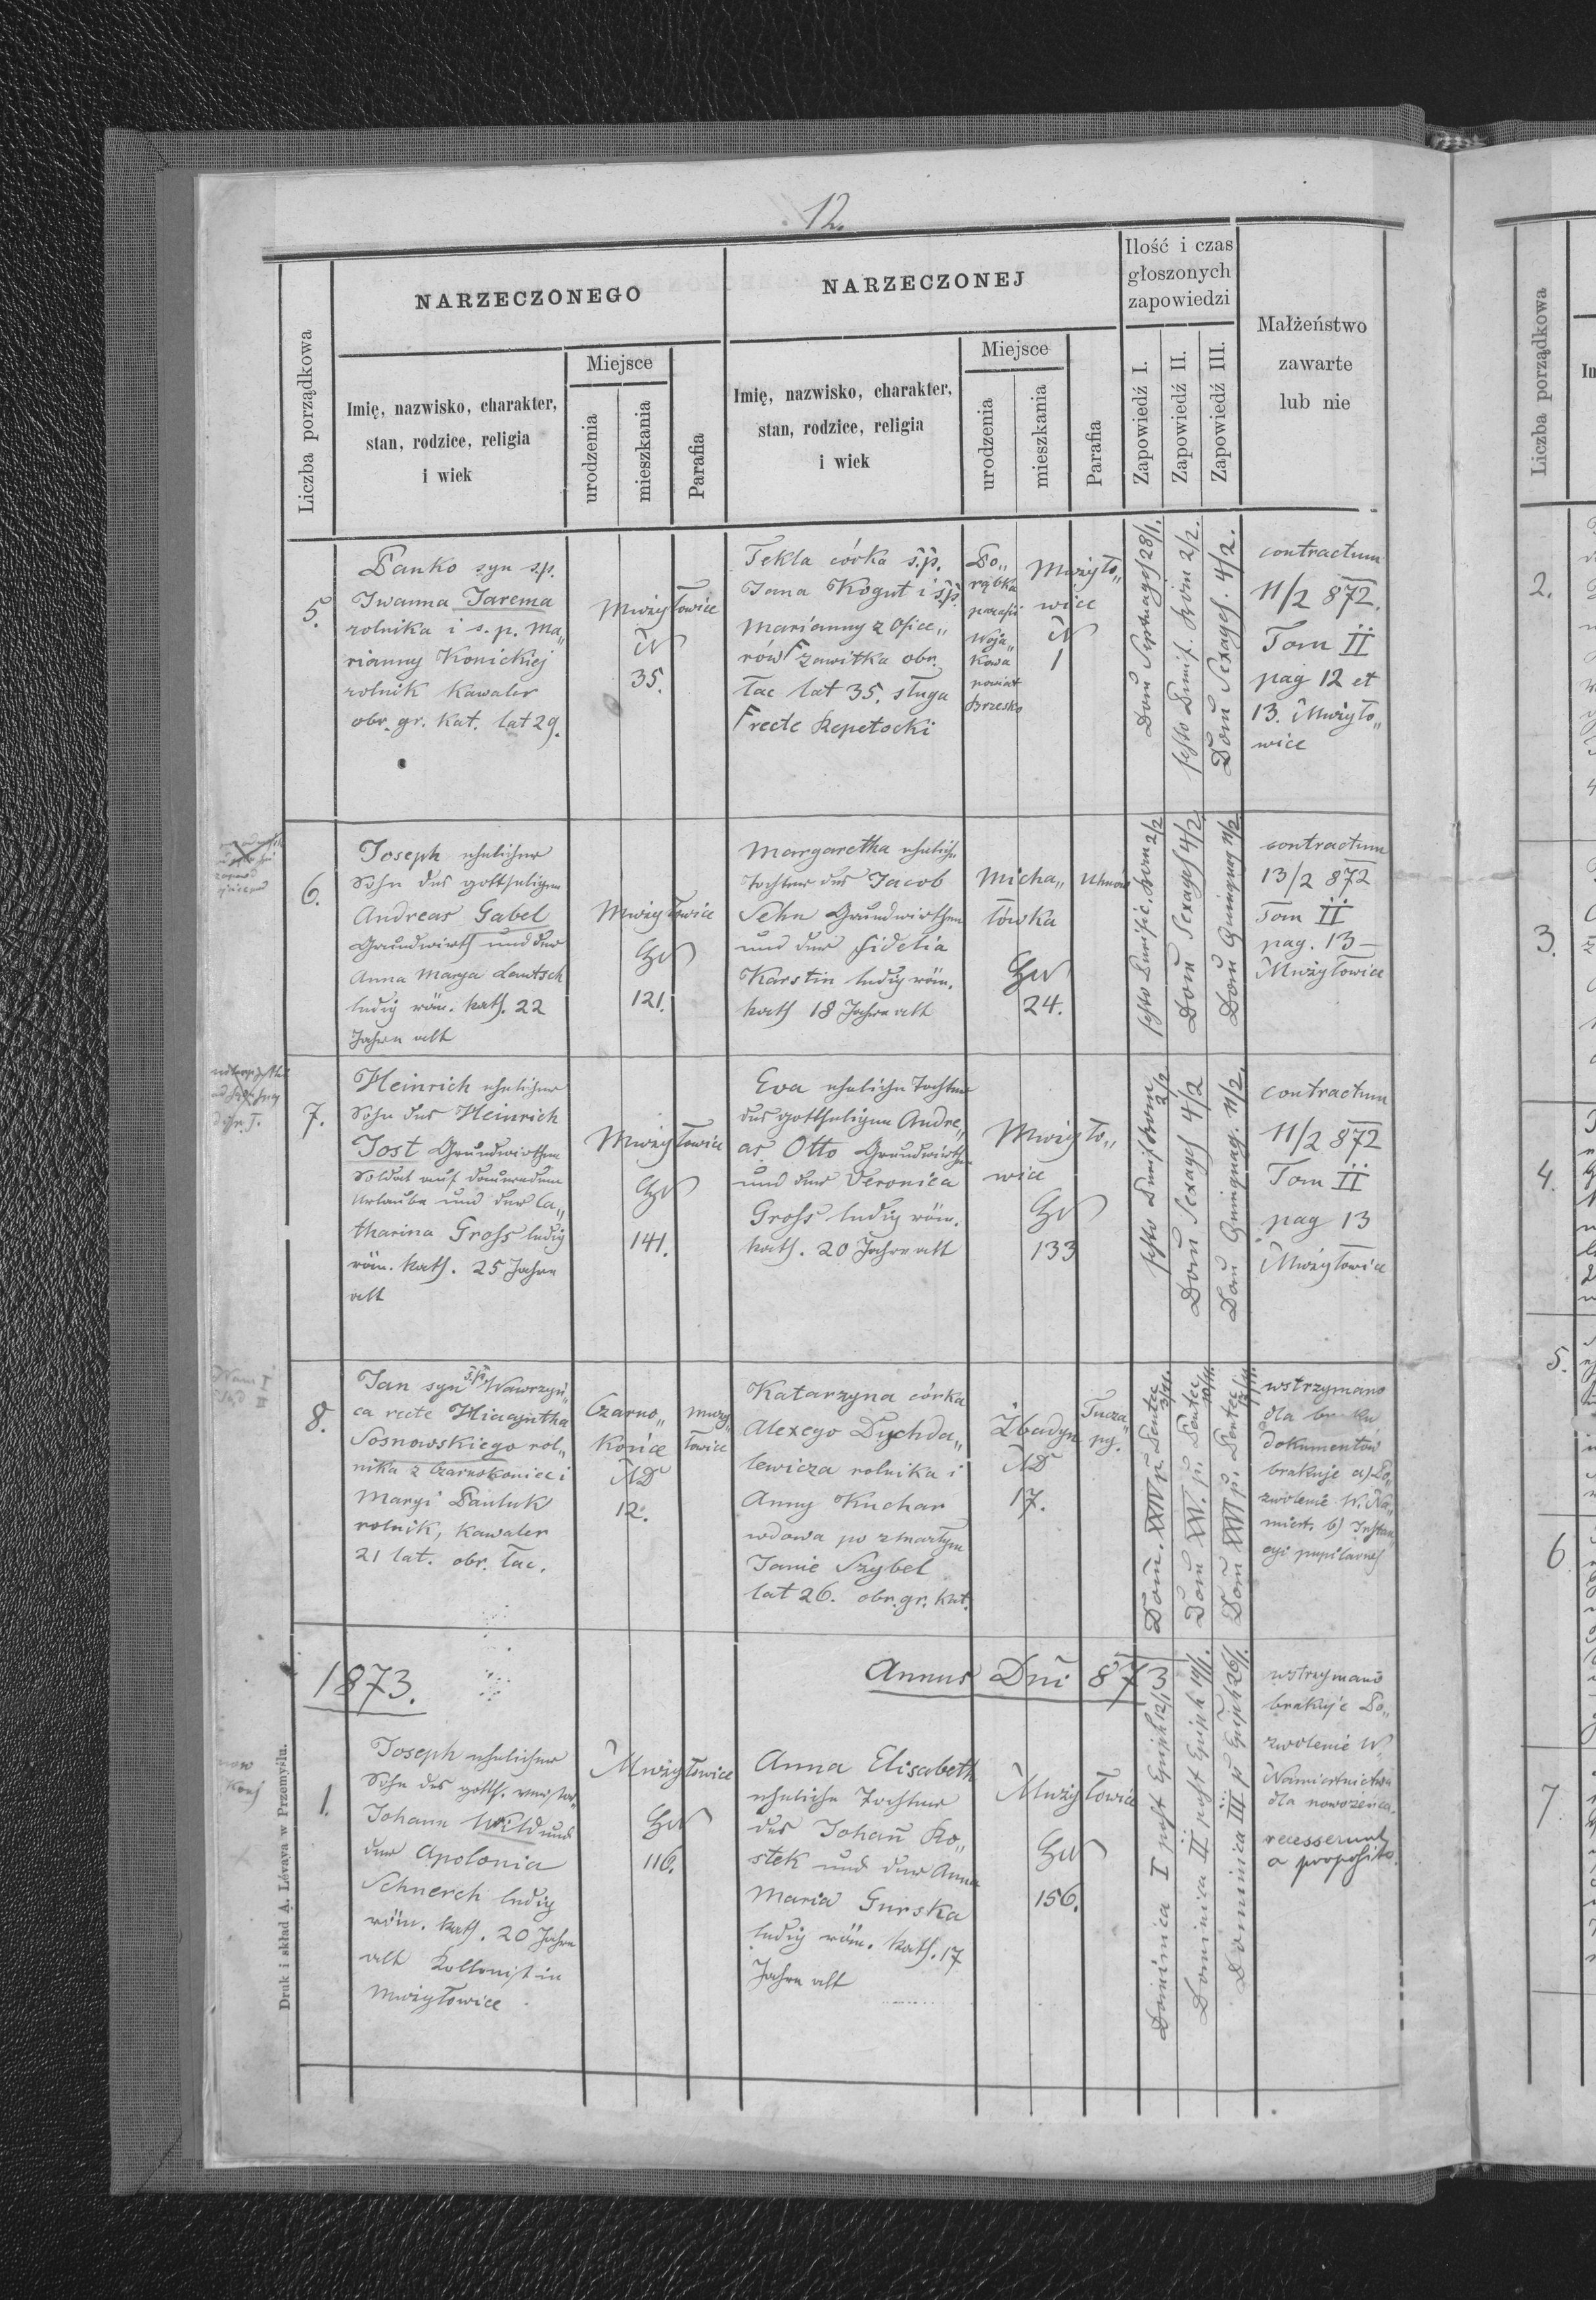 12.
Liczba porządkowa
NARZECZONEGO
Imię, nazwisko, charakter,
stan, rodzice, religia
i wiek
Miejsce
urodzenia
mieszkania
Parafia
NARZECZONEJ
Imię, nazwisko, charakter,
stan, rodzice, religia
i wiek
Miejsce
urodzenia
mieszkania
Parafia
Ilość i czas
głoszonych
zapowiedzi
Zapowiedź I.
Zapowiedź II.
Zapowiedź III.
Małżeństwo
zawarte
lub nie
5.
Panko syn ś.p.
Iwanna Jarema
rolnika i s.p. Ma„
rianny Konickiej
rolnik Kawaler
obr. gr. kat. lat 29.
Mużyłowice
N
35.
Tekla córka ś.p.
Jana Kogut i ś.p.
Marianny z Ofice„
rów zawitka obr.
łac lat 35. sługa
recte Repetocki
Po„
rąbka
parafii
Woja„
kowa
powiat
Brzesko
Mużyło„
wice
N
1
Dom Septuages 28/1.
festo Purif. 2/2.
Dom Sexages. 4/2.
contractum
11/2 872.
Tom II
pag 12 et
13. Mużyło„
wice
6.
Joseph ehelicher
Sohn des gottseligen
Andreas Gabel
Grundwirth und der
Anna Marya Lautsch
ledig röm. kath. 22
Jahre alt
Mużyłowice
121.
Margaretha eheliche
Tochter des Jacob
Sehn Grundwirthen
und der Fidelia
Karstin ledig röm.
kath 18 Jahre alt
Micha„
łówka
24.
festo Purific. 2/2
Dom Sexages 4/2
Dom Quinquag 11/2
contractum
13/2 872
Tom II
pag. 13 —
Mużyłowice
7.
Heinrich ehelicher
Sohn des Heinrich
Jost Grundwirthen
Soldat auf dauerndem
Urlaube und der Ca„
tharina Gross ledig
röm. kath. 25 Jahre
alt
Mużyłowice
141.
Eva eheliche Tochter
des gottseligen Andre„
as Otto Grundwirthen
und der Veronica
Gross ledig röm.
kath. 20 Jahre alt
Mużyło„
wice
133
festo Purif 2/2
Dom Sexages 4/2
Dom Quinquag. 11/2.
contractum
11/2 872
Tom II
pag 13
Mużyłowice
8.
Jan syn ś.p. Wawrzyń„
ca recte Hiacyntha
Sosnowskiego rol„
nika z Czarnokoniec i
Maryi Pauluk
rolnik, kawaler
21 lat. obr. łac.
Czarno„
końce
ND
12.
Muży„
łowice
Katarzyna córka
Alexego Dychda„
lewicza rolnika i
Anny Kuchar
wdowa po zmarłym
Janie Szybel
lat 26. obr. gr. kat.
Zbadyn
ND
17.
Tucza„
py.
Dom. XXIV p. Pentec
Dom XXV. p. Pentec
Dom XXVI p. Pentec
wstrzymano
dla
dokumentów
brakuje a) Po„
zwolenie W. Na„
miest. b) Instan„
cyi pupilarnej
1873.
Annus Dni 873
1.
Joseph ehelicher
Sohn des gotts.
Johann Wild und
der Apolonia
Schnerch ledig
röm. kath. 20 Jahre
alt Kollonist in
Mużyłowice
Mużyłowice
116.
Anna Elisabeth
eheliche Tochter
des Johann Ko„
stek und der Anna
Maria Gurska
ledig röm. kath. 17
Jahre alt
Mużyłowice
156.
Dominica I post Epiph 12/1
Dominica II post Epiph 19/1.
Dominica III p Epiph 26/1.
wstrzymano
brakuje Po„
zwolenie W.
Namiestnictwa
dla nowożeńca.
recesserunt
a proposito.
Druk i skład A. Lévaya w Przemyślu.
Liczba porządkowa
2.
3.
4.
5.
6
7